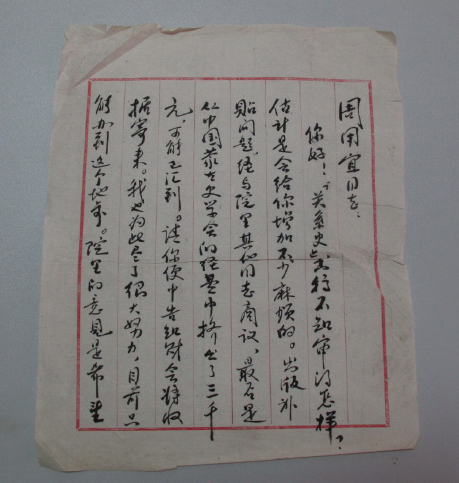 周用宜同志:
你好!《关系史》不知审得怎样?
估计是会给你增加不少麻烦的。出版补
贴问题经与院里其他同志商议,最后是
从中国蒙古史学会的经费中挤出了三千
元,可能已汇到。请你便中告知财会将收
据寄来。我也为此尽了很大努力,目前只
能办到这个地步。院里的意见是希望